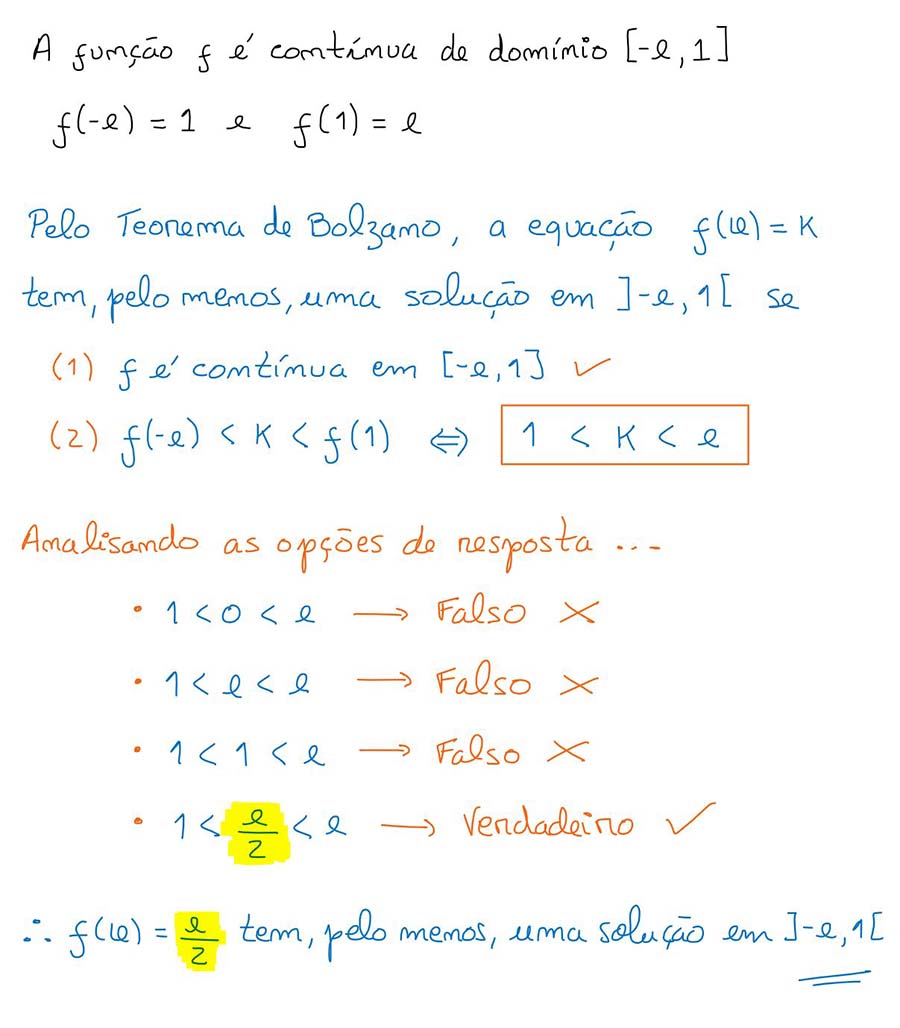 A função f é contínua de domínio [-e, 1]
f(-e) = 1 e f(1) = e
Pelo Teorema de Bolzano, a equação f(x) = K
tem, pelo menos, uma solução em ]-e, 1[ se
(1) f é contínua em [-e, 1] ✓
(2) f(-e) < K < f(1) ⇔ 1 < K < e
Analisando as opções de resposta ...
• 1 < 0 < e → Falso ×
• 1 < e < e → Falso ×
• 1 < 1 < e → Falso ×
• 1 < e/2 < e → Verdadeiro ✓
∴ f(x) = e/2 tem, pelo menos, uma solução em ]-e, 1[